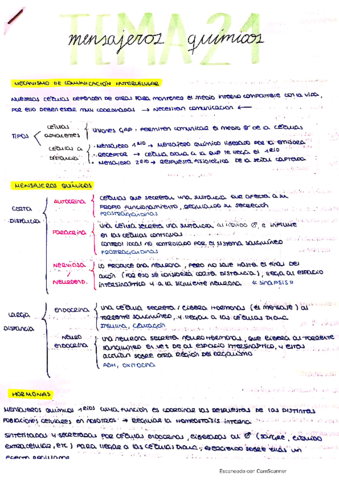 TEMA 24
mensajeros químicos
MECANISMO DE COMUNICACIÓN INTERCELULAR
NUESTRAS CÉLULAS DEPENDEN DE OTRAS PARA MANTENER EL MEDIO INTERNO COMPATIBLE CON LA VIDA,
POR ESO DEBEN ESTAR MUY COORDINADAS → NECESITAN COMUNICACIÓN
TIPOS
CÉLULAS ADYACENTES
UNIONES GAP: PERMITEN COMUNICAR EL MEDIO DE CÉLULAS
A DISTANCIA
- MENSAJERO 1RIO → MENSAJERO QUÍMICO LIBERADO POR LA EMISORA
- RECEPTOR → CÉLULA DIANA A LA QUE LE LLEGA EL 1RIO
- MENSAJERO 2RIO → RESPUESTA FISIOLÓGICA DE LA SEÑAL CAPTADA
MENSAJEROS QUÍMICOS
CORTA DISTANCIA
AUTOCRINA
CÉLULAS QUE SECRETAN UNA SUSTANCIA QUE AFECTA A SU
PROPIO FUNCIONAMIENTO, REGULANDO SU SECRECIÓN
PROSTAGLANDINAS
PARACRINA
UNA CÉLULA SECRETA UNA SUSTANCIA, AL LÍQUIDO E INFLUYE
EN LAS CÉLULAS CONTIGUAS
CONTROL LOCAL NO CONTROLADO POR EL SISTEMA SANGUÍNEO
PROSTAGLANDINAS
NERVIOSA / NEUROTRANS.
LO PRODUCE UNA NEURONA, PERO NO SALE HASTA EL FINAL DEL
AXÓN (POR ESO SE CONSIDERA CORTA DISTANCIA), LLEGA AL ESPACIO
INTERSINÁPTICO Y A LA SIGUIENTE NEURONA "SINAPSIS"
LARGA DISTANCIA
ENDOCRINA
UNA CÉLULA SECRETA / LIBERA HORMONAS (EL MENSAJE) AL
TORRENTE SANGUÍNEO, Y LLEGAN A LAS CÉLULAS DIANA
INSULINA, GLUCAGÓN
NEURO ENDOCRINA
UNA NEURONA SECRETA NEUROHORMONAS, QUE LIBERA AL TORRENTE
SANGUÍNEO EN VEZ DE AL ESPACIO INTERSINÁPTICO, Y ESTAS
ACTÚAN SOBRE OTRA REGIÓN DEL ORGANISMO
ADH, OXITOCINA
HORMONAS
MENSAJEROS QUÍMICOS 1RIOS CUYA FUNCIÓN ES COORDINAR LAS RESPUESTAS DE LAS DISTINTAS
POBLACIONES CELULARES EN NOSOTROS → REGULAR LA HOMEOSTASIS INTERNA
SINTETIZADAS Y SECRETADAS POR CÉLULAS ENDOCRINAS, LIBERADAS AL (SANGRE, LÍQUIDO
EXTRACELULAR, ETC) PARA LLEGAR A LAS CÉLULAS DIANA, EJERCIENDO SOBRE ELLAS UN
Escaneado con CamScanner